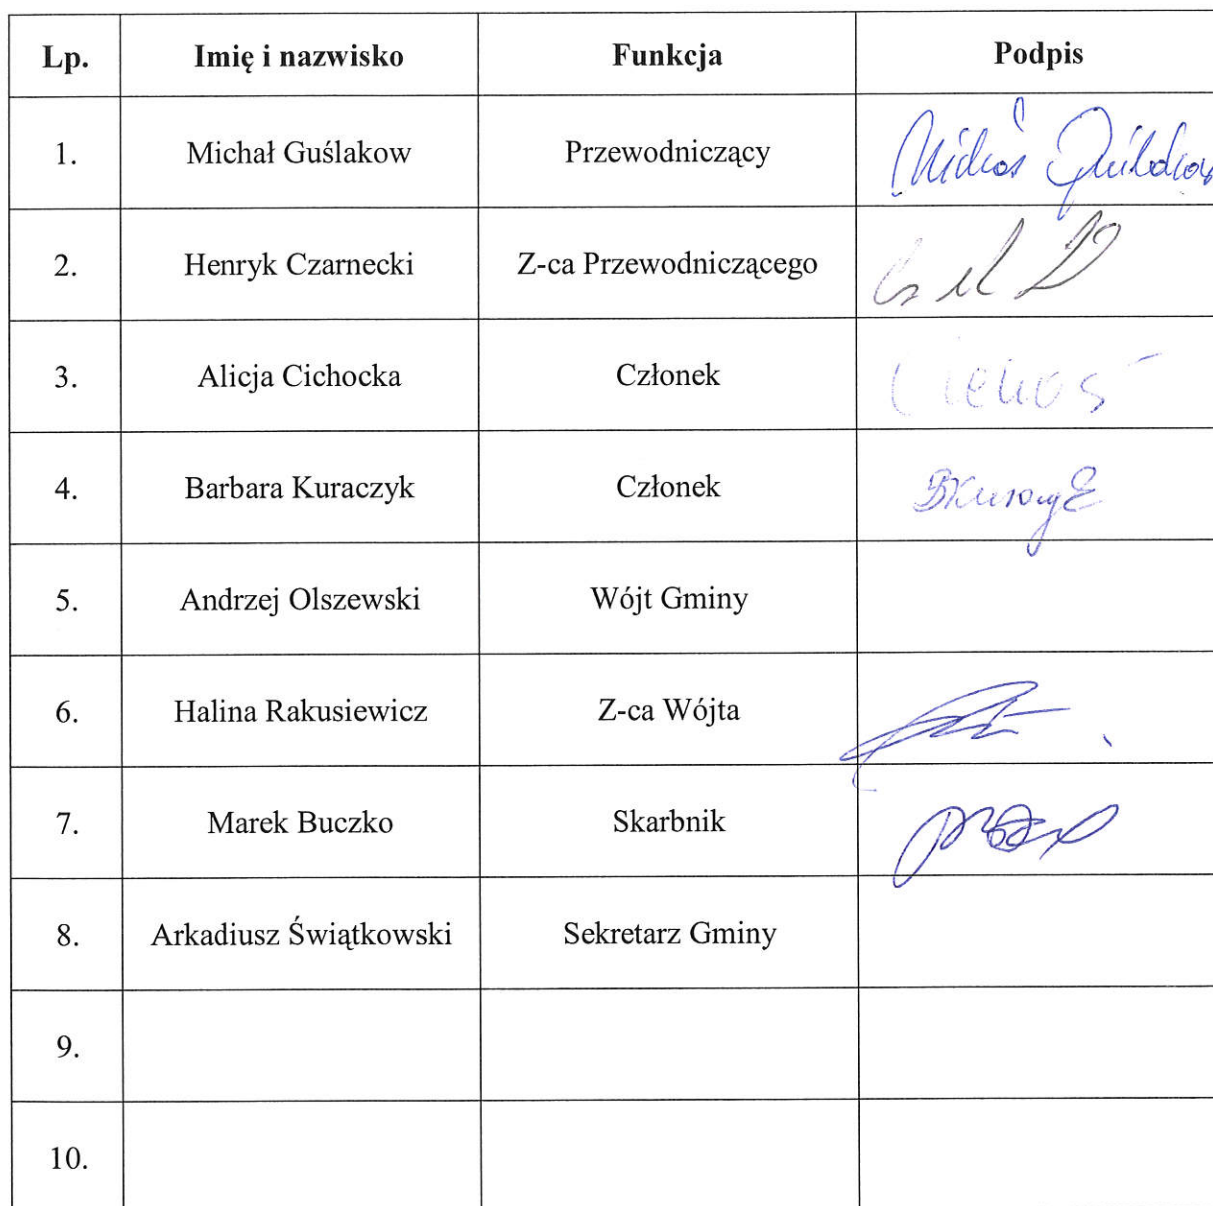 Lp. Imię i nazwisko Funkcja Podpis
1. Michał Guślakow Przewodniczący
2. Henryk Czarnecki Z-ca Przewodniczącego
3. Alicja Cichocka Członek
4. Barbara Kuraczyk Członek
5. Andrzej Olszewski Wójt Gminy
6. Halina Rakusiewicz Z-ca Wójta
7. Marek Buczko Skarbnik
8. Arkadiusz Świątkowski Sekretarz Gminy
9.
10.